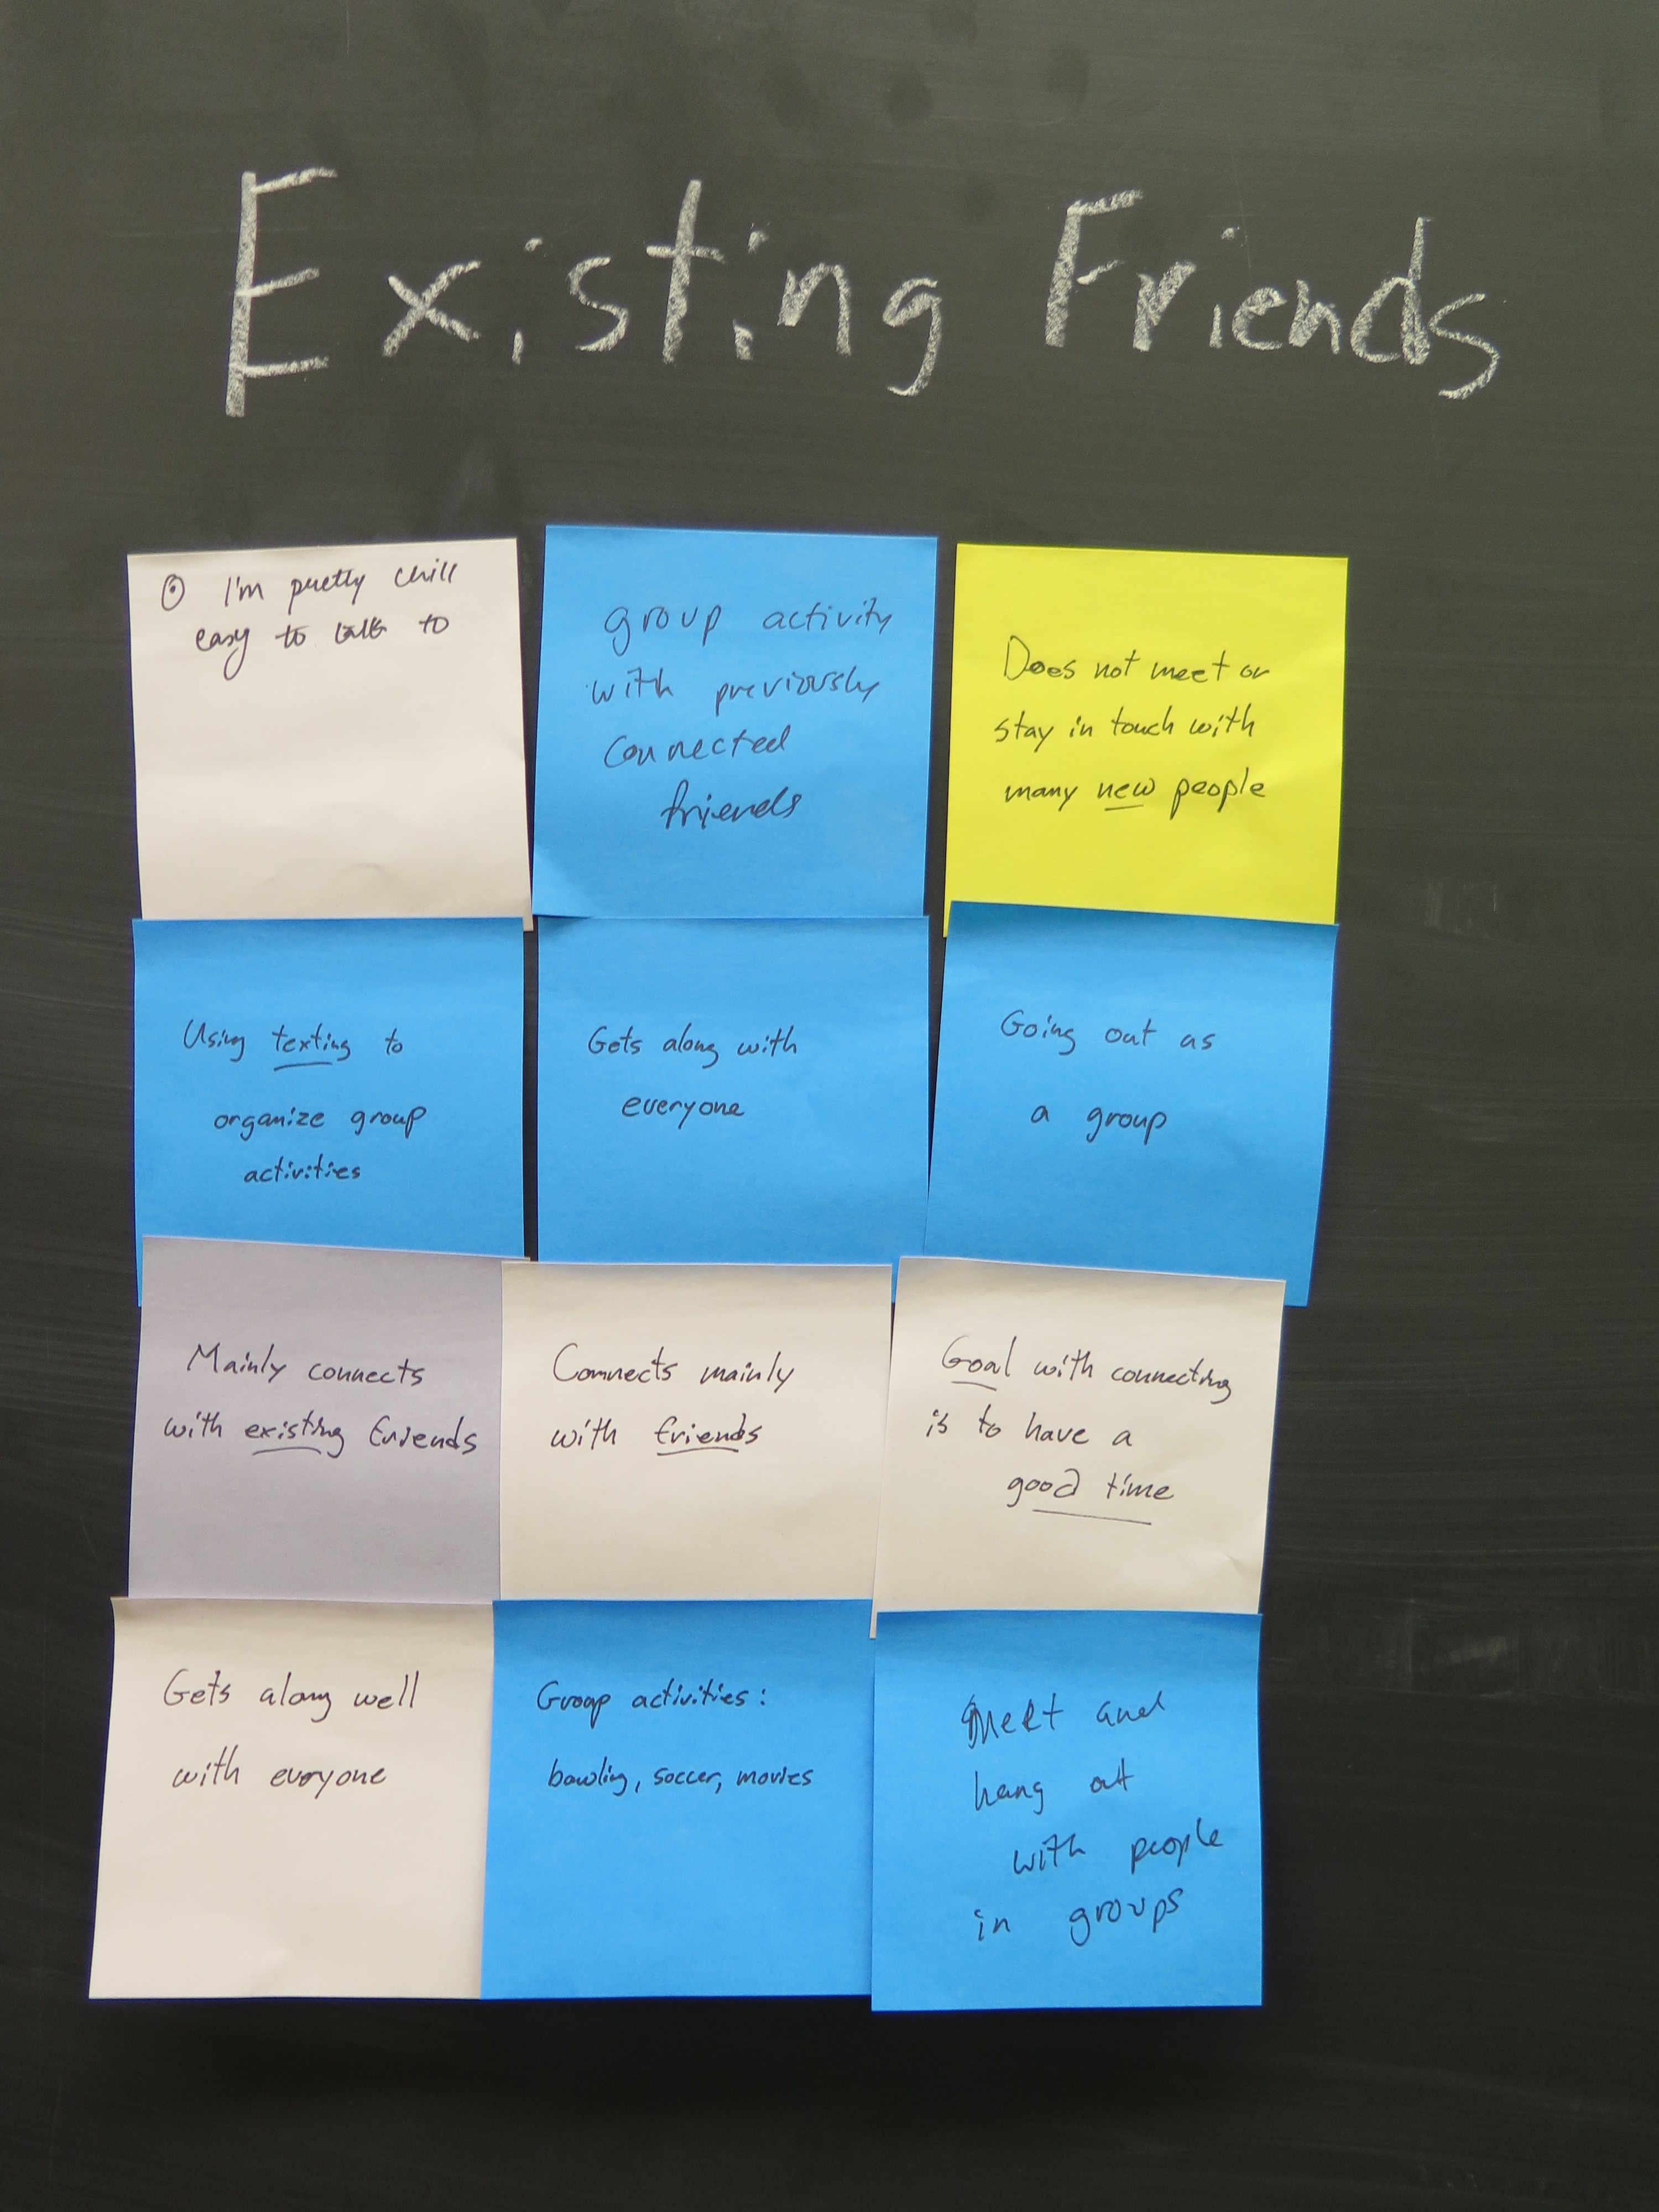 Existing Friends
I'm pretty chill
easy to talk to
group activity
with previously
connected
friends
Does not meet or
stay in touch with
many new people
Using texting to
organize group
activities
Gets along with
everyone
Going out as
a group
Mainly connects
with existing friends
Connects mainly
with friends
Goal with connecting
is to have a
good time
Gets along well
with everyone
Group activities:
bowling, soccer, movies
Meet and
hang out
with people
in groups